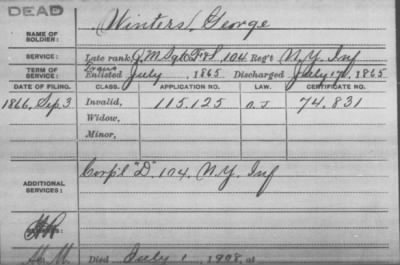 DEAD
NAME OF SOLDIER: Winters, George
SERVICE: Late rank, Q.M. Sgt. F&S, 104 Reg't N.Y. Inf
TERM OF SERVICE: Enlisted July, 1865 Discharged July 17, 1865
DATE OF FILING. CLASS. APPLICATION NO. LAW. CERTIFICATE NO.
1866, Sep. 3 Invalid, 115.125 74.831
Widow,
Minor,
ADDITIONAL SERVICES: Corp'l "D" 104. N.Y. Inf
Died July 1, 1908, at